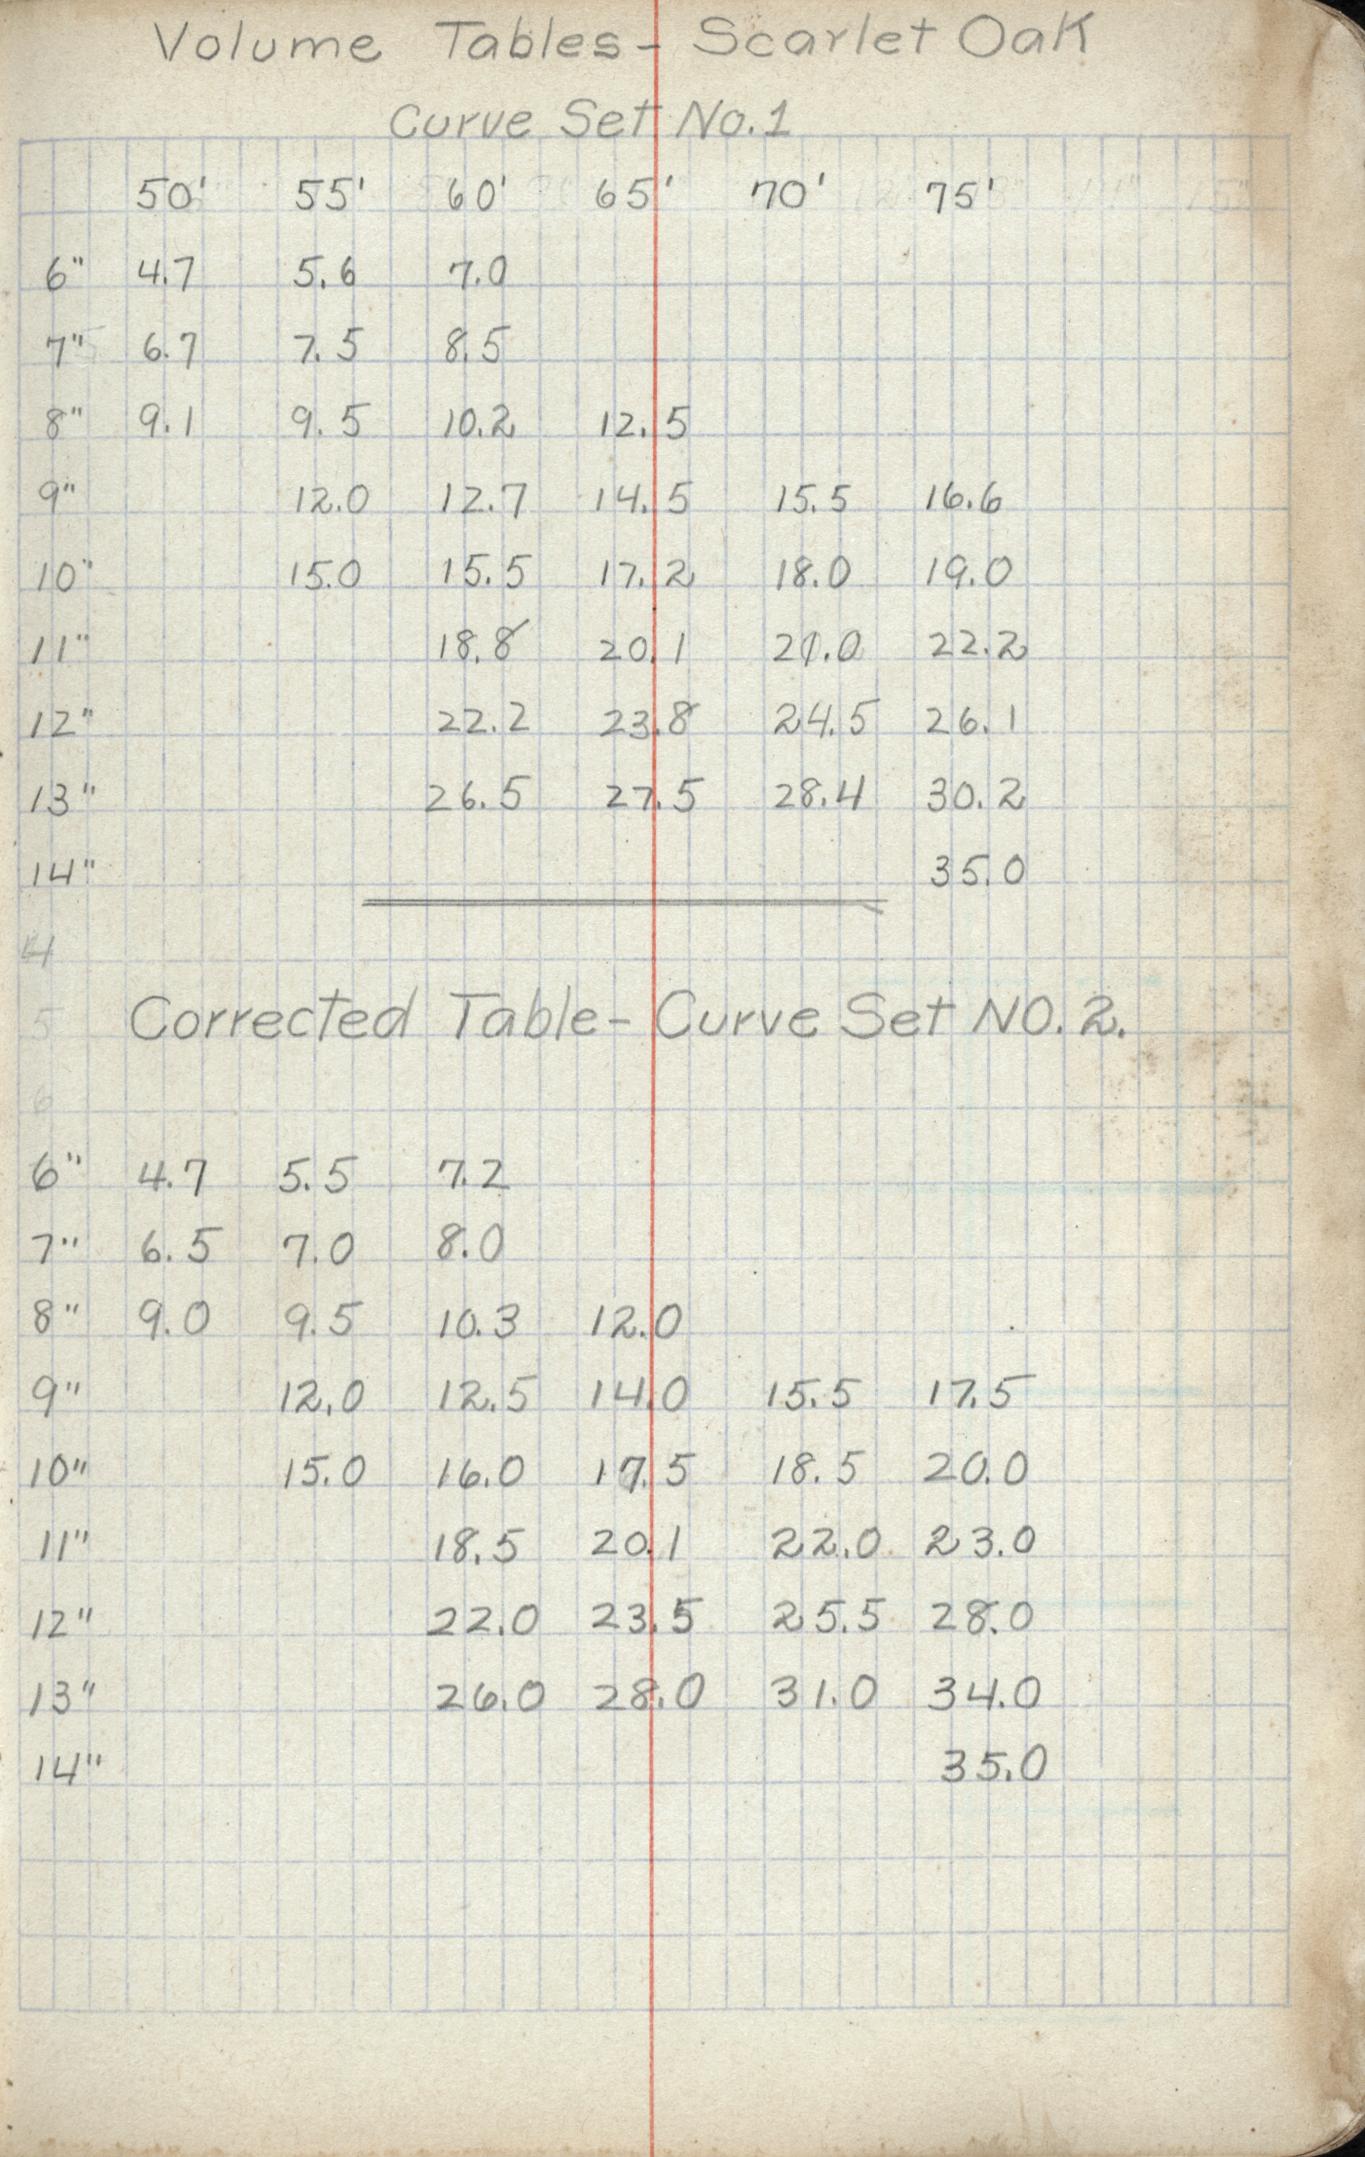 Volume Tables - Scarlet Oak
Curve Set No. 1
50' 55' 60' 65' 70' 75'
6" 4.7 5.6 7.0
7" 6.7 7.5 8.5
8" 9.1 9.5 10.2 12.5
9" 12.0 12.7 14.5 15.5 16.6
10" 15.0 15.5 17.2 18.0 19.0
11" 18.8 20.1 21.0 22.2
12" 22.2 23.8 24.5 26.1
13" 26.5 27.5 28.4 30.2
14" 35.0
4
5 Corrected Table - Curve Set NO. 2.
6
6" 4.7 5.5 7.2
7" 6.5 7.0 8.0
8" 9.0 9.5 10.3 12.0
9" 12.0 12.5 14.0 15.5 17.5
10" 15.0 16.0 17.5 18.5 20.0
11" 18.5 20.1 22.0 23.0
12" 22.0 23.5 25.5 28.0
13" 26.0 28.0 31.0 34.0
14" 35.0